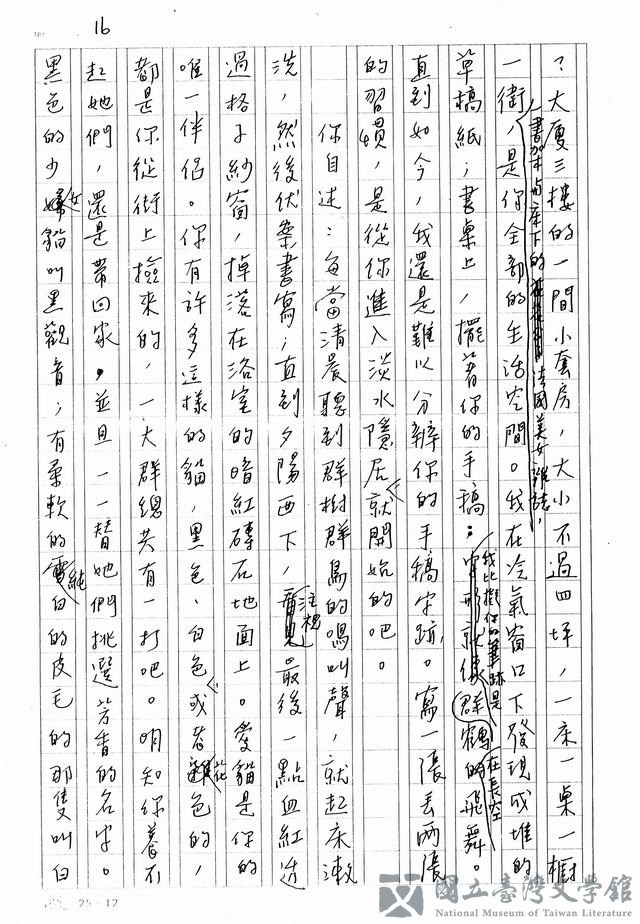 16
？大廈三樓的一間小套房，大小不過四坪，一床一桌一櫥
一衛，是你全部的生活空間。我在冷氣窗口下發現成堆的
書架和床下的法國美女雜誌，
草稿紙；書桌上，擺著你的手稿：字形就像群鶴的飛舞。
我比擬你的筆跡是
在長空
直到如今，我還是難以分辨你的手稿字跡。寫一張丟兩張
的習慣，是從你進入淡水隱居就開始的吧。
你自述：每當清晨聽到群樹群鳥的鳴叫聲，就起床漱
洗，然後伏案書寫；直到夕陽西下，注視最後一點血紅透
過格子紗窗，掉落在浴室的暗紅磚石地面上。愛貓是你的
唯一伴侶。你有許多這樣的貓，黑色、白色或者雜色的，
花
都是你從街上撿來的，一大群總共有一打吧。明知你養不
起她們，還是帶回家，並且一一替她們挑選芳香的名字。
黑色的少女貓叫黑觀音；有柔軟的純白的皮毛的那隻叫白
25 12
國立臺灣文學館
National Museum of Taiwan Literature